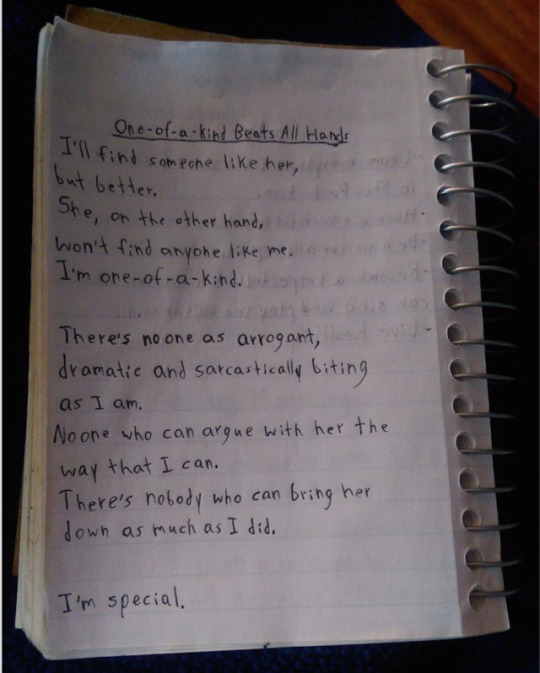 One-of-a-kind Beats All Hands
I'll find someone like her,
but better.
She, on the other hand,
won't find anyone like me.
I'm one-of-a-kind.
There's no one as arrogant,
dramatic and sarcastically biting
as I am.
No one who can argue with her the
way that I can.
There's nobody who can bring her
down as much as I did.
I'm special.